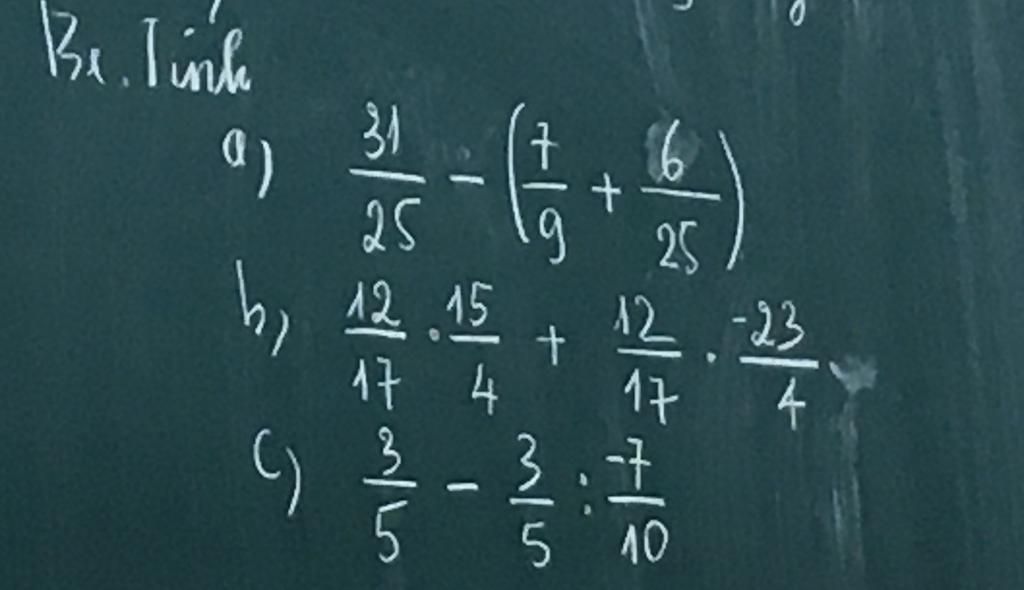 B1. Tính
a) 31/25 - (7/9 + 6/25)
b) 12/17 . 15/4 + 12/17 . -23/4
c) 3/5 - 3/5 : -7/10